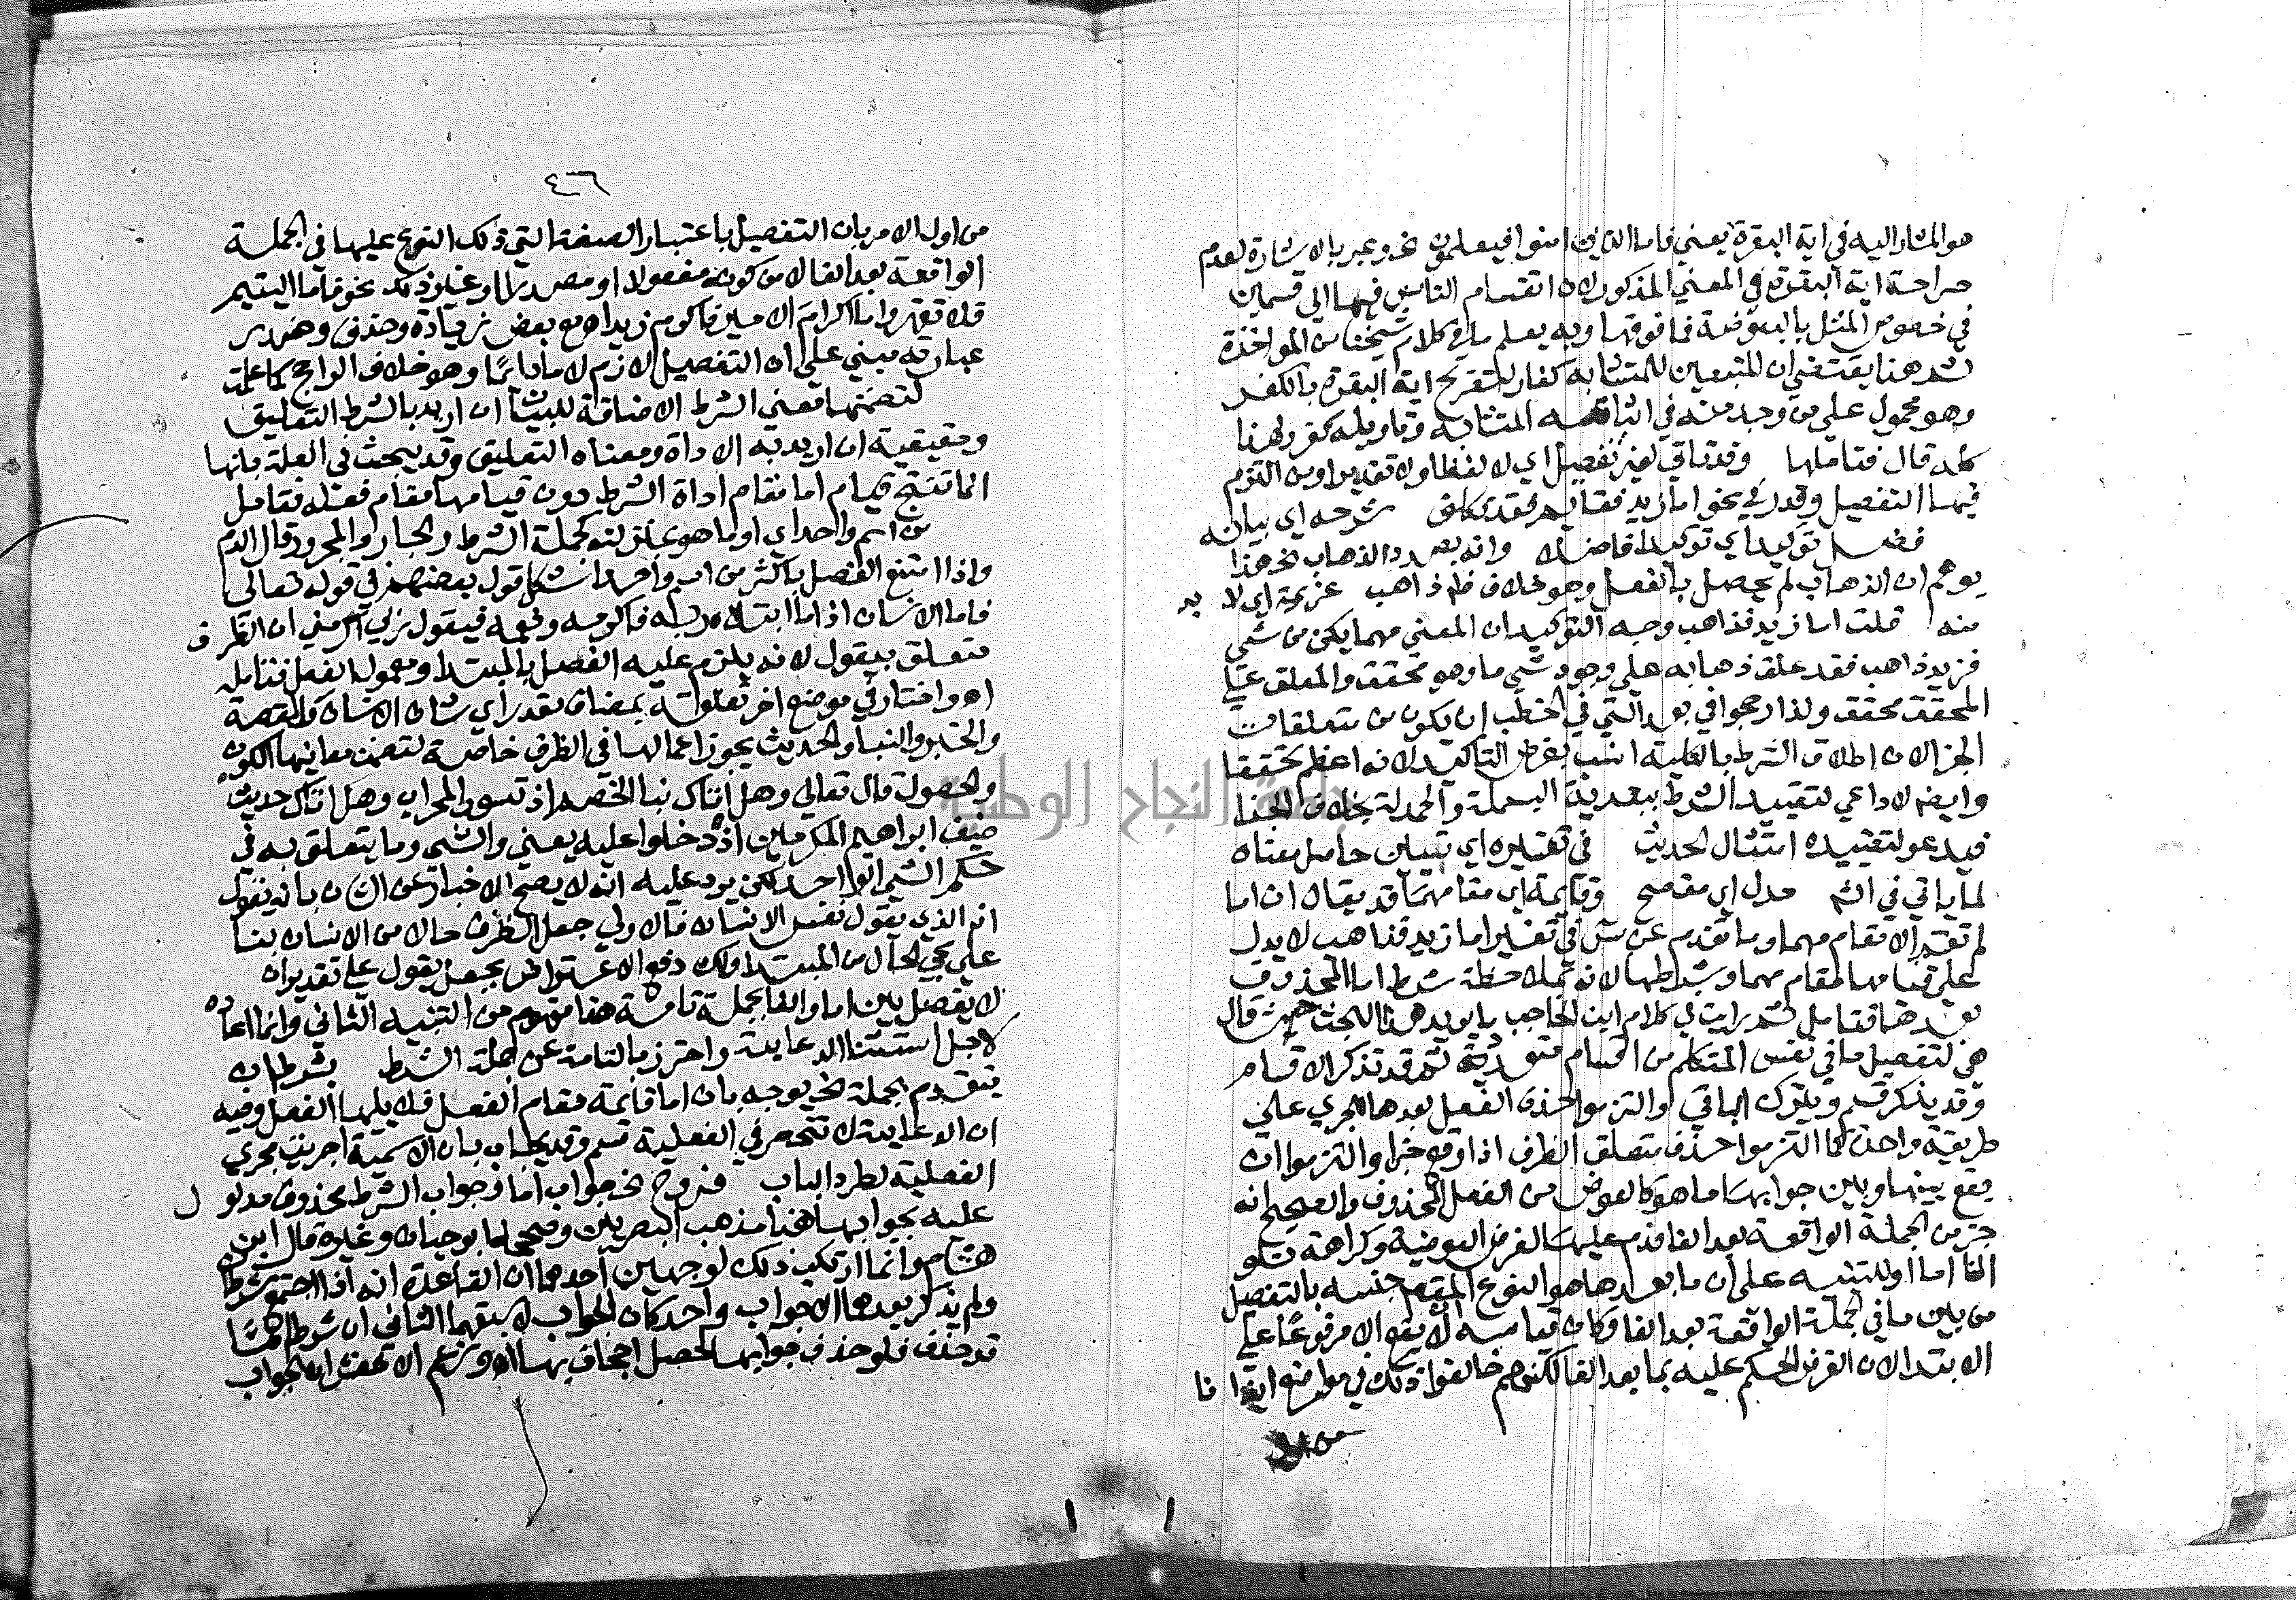 هو المشار اليه في اية البقرة يعني فاما الذين امنوا فيعلمون نحو وعبر بالاشارة لعدم
صراحة اية البقرة في المعني المذكور لان انقسام الناس فيها الي قسمين
في خصوص المثل بالبعوضة فما فوقها وبه يعلم ما في كلام شيخنا من المواخذة
ثم هذا يقتضي ان المتبعين للمتشابه كفار لتصريح اية البقرة بالكفر
وهو محمول علي من وجد منه في المتشابه وتاويله كفر لهذا
كله قال فتاملها وقد تاتي لغير تفصيل اي لا لفظا ولا تقديرا ومن التزم
فيها التفصيل وقدر في نحو اما زيد فقايم فقد تكلف شرحه اي بيانه
فضل توكيد اي توكيدا فاضلا وانه بصدد الذهاب نحو هذا
يوهم ان الذهاب لم يحصل بالفعل وهو خلاف ظاهر ذاهب عزيمة اي لا بد
منه قلت اما زيد فذاهب وجه التوكيد ان المعني مهما يكن من شي
فزيد ذاهب فقد علق ذهابه علي وجود شي ما وهو محقق والمعلق علي
المحقق محقق ولذا رجحوا في بعد التي في الخطب ان يكون من متعلقات
الجزا لان اطلاق الشرط بالكلية انسب بغرض التاكيد لانه اعظم تحققا
وايضا لا داعي لتقييد الشرط ببعدية البسملة والحمدلة بخلاف الجزا
فيدعو لتقييده امتثال الحديث في تفسيره اي تبيين حاصل معناه
لما ياتي في الشم مدل اي مفصح وقايمة اي مقام مهما قد يقال ان اما
لم تقم الا مقام مهما وما تقدم عن س في تفسير اما زيد فذاهب لا يدل
علي قيامها مقام مهما وشرطها لانه بملاحظة شرط اما المحذوف
بعدها فتامل ثم رايت في كلام ابن الحاجب ما يويد هذا البحث حيث قال
هي لتفصيل ما في نفس المتكلم من اقسام متعددة ثم قد تذكر الاقسام
وقد يذكر قسم ويترك الباقي والتزموا حذف الفعل بعدها لجري علي
طريقة واحدة كما التزموا حذف متعلق الظرف اذا وقع خبرا والتزموا ان
يقع بينها وبين جوابها ما هو كالعوض من الفعل المحذوف والصحيح انه
جزء من الجملة الواقعة بعد الفا قدم عليها لغرض العوضية وكراهة تلو
الفا اما او للتنبيه علي ان ما بعدها هو النوع المقصود جنسه بالتفصيل
من بين ما في الجملة الواقعة بعد الفا وكان قياسه ان لا يقع الا مرفوعا علي
الابتدا لان الغرض الحكم عليه بما بعد الفا لكنهم خالفوا ذلك في مواضع ايذانا
من اول
٤٦
من اول الامر بان التفصيل باعتبار الصفة التي ذلك النوع عليها في الجملة
الواقعة بعد الفا لا من كونه مفعولا او مصدرا او غير ذلك نحو فاما اليتيم
فلا تقهر واما اكرام الامير فاكرم زيدا اه مع بعض زيادة وحذف وصدر
عبارته مبني علي ان التفصيل لازم لاما دايما وهو خلاف الراجح كما علمت
لتضمنها معني الشرط الاضافة للبيان ان اريد بالشرط التعليق
وحقيقية ان اريد به الاداة ومعناه التعليق وقد يبحث في العلة بانها
انما تنتج قيام اما مقام اداة الشرط دون قيامها مقام فعله فتامل
من اسم واحد اي او ما هو بمنزلته كجملة الشرط والجار والمجرور قال الدم
واذا امتنع الفصل باكثر من اسم واحد اشكل قول بعضهم في قوله تعالي
فاما الانسان اذا ما ابتلاه ربه فاكرمه ونعمه فيقول ربي اكرمني ان الظرف
متعلق بيقول لانه يلزم عليه الفصل بالمبتدا ومعمول الفعل فتامله
اه واختار في موضع اخر تعلقه بمضاف مقدر اي شان الانسان والقصة
والخبر والنبا والحديث يجوز اعمالها في الظرف خاصة لتضمن معانيها الكون
والحصول قال تعالي وهل اتاك نبا الخصم اذ تسوروا المحراب وهل اتاك حديث
ضيف ابراهيم المكرمين اذ دخلوا عليه يعني والشي وما يتعلق به في
حكم الشي الواحد لكن يرد عليه انه لا يصح الاخبار عن الشان بانه يقول
انما الذي يقول نفس الانسان فالاولي جعل الظرف حالا من الانسان بنا
علي مجي الحال من المبتدا ولك دفع الاعتراض بجعل يقول علي تقدير ان
لا يفصل بين اما والفا بجملة تامة هذا مفهوم من التنبيه الثاني وانما اعاده
لاجل استثنا الدعايية واحترز بالتامة عن جملة الشرط بشرط ان
يتقدم الجملة نحو يوجه بان اما قايمة مقام الفعل فلا يليها الفعل وفيه
ان الدعايية لا تنحصر في الفعلية سم وقد يجاب بان الاسمية اجريت مجري
الفعلية لطرد الباب فروح نحو جواب اما وجواب الشرط محذوف مدلول
عليه بجوابها هذا مذهب البصريين وصححه ابو حيان وغيره قال ابن
هشام وانما ارتكب ذلك لوجهين احدهما ان القاعدة انه اذا اجتمع شرطان
ولم يذكر بعدهما الا جواب واحد كان الجواب لاسبقهما الثاني ان شرط اما
قد حذف فلو حذف جوابها لحصل اجحاف بها اه وزعم الاخفش ان الجواب
جامعة النجاح الوطنية